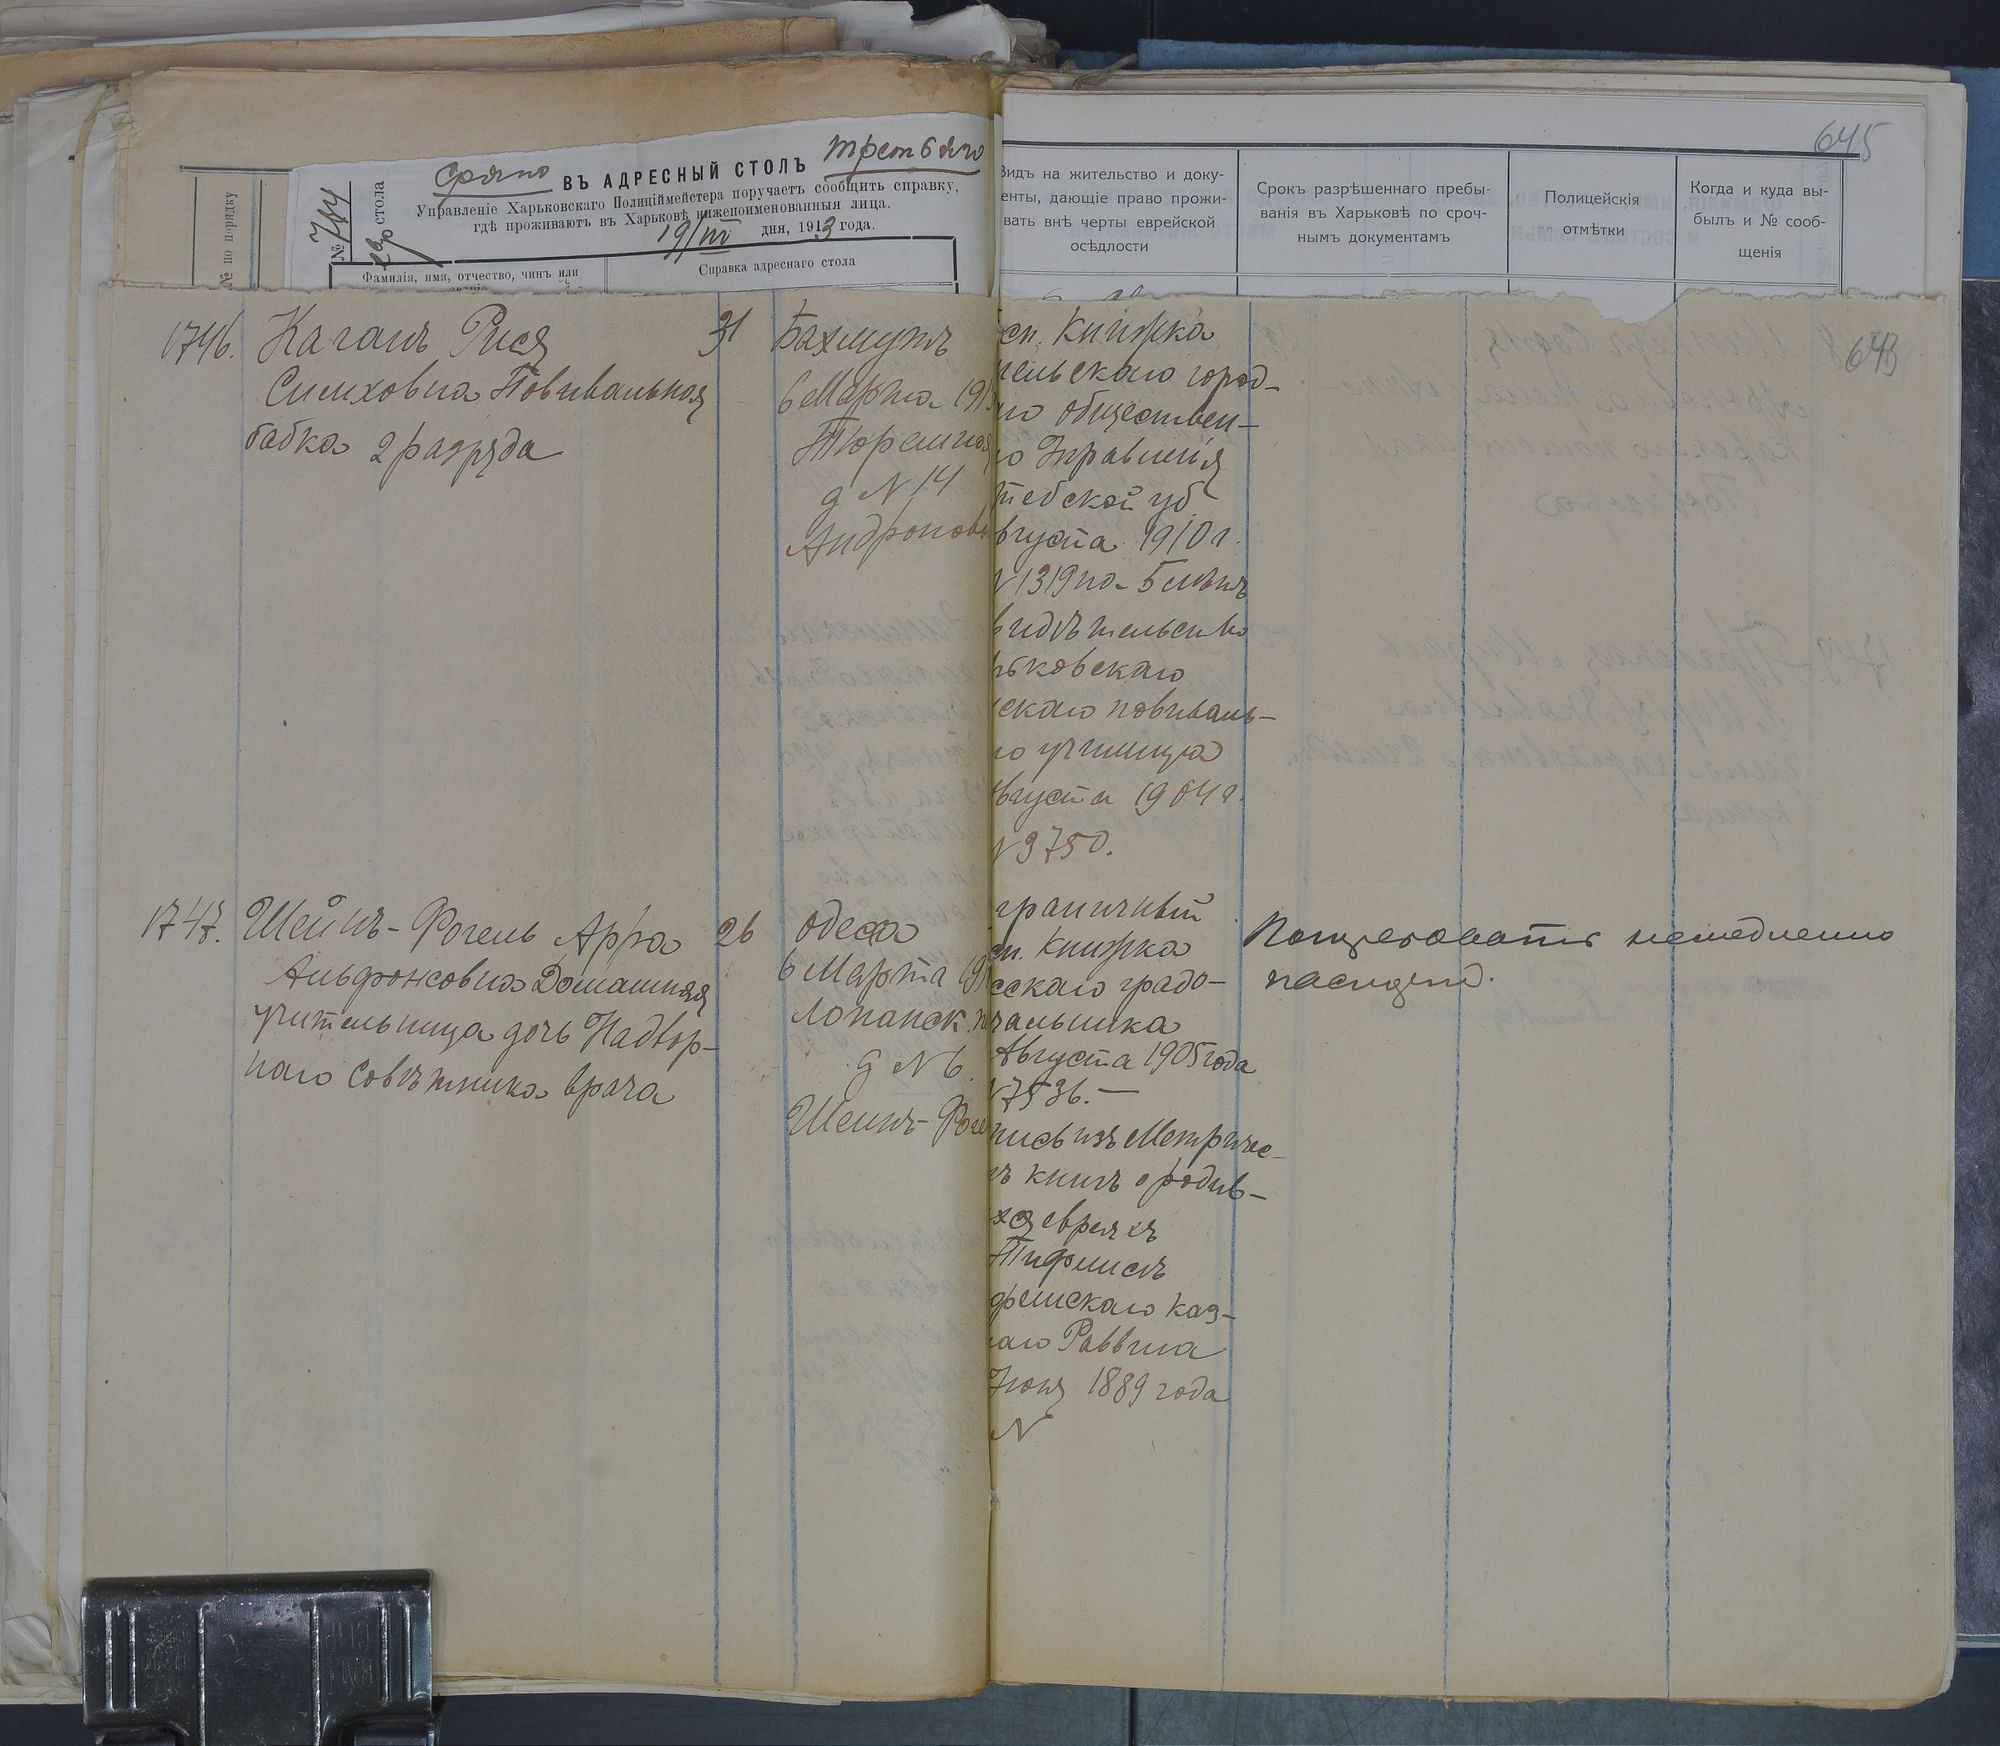 645
ВЪ АДРЕСНЫЙ СТОЛЪ
Управленіе Харьковскаго Полиціймейстера поручаетъ сообщить справку,
гдѣ проживаютъ въ Харьковѣ нижепоименованныя лица.
19/III дня, 1913 года.
№ 784
стола
№ по порядку
Фамилія, имя, отчество, чинъ или
Справка адреснаго стола
Видъ на жительство и доку-
енты, дающіе право прожи-
вать внѣ черты еврейской
осѣдлости
Срокъ разрѣшеннаго пребы-
ванія въ Харьковѣ по сроч-
нымъ документамъ
Полицейскія
отмѣтки
Когда и куда вы-
былъ и № сооб-
щенія
643
1746.
Каганъ Рися
Симховна Повивальная
бабка 2 разряда
31
Бахмутъ
6 Марта 191
Тюремная
д N 14
Андронова
сп. Книжка
ельскаго город-
го обществен-
о Управленія
тебской губ
вгуста 1910 г.
N 1319 на 5 лѣтъ
видѣтельство
рьковскаго
скаго повиваль-
го училища
вгуста 1904 г.
N 3750.
1747.
Шейнъ-Фогель Арра
Альфонсовна Домашняя
учительница дочь Надвор-
наго Совѣтника врача
26
Одесса
6 Марта 191
Лопанск.
д N 6.
Шеинъ-Фоге
граничный
сп. Книжка
сскаго градо-
чальника
Августа 1905 года
N 7536.—
пись изъ Метричес-
ъ книгъ о родив-
хся евреяхъ
Тифлисъ
флисскаго каз-
наго Раввина
Іюня 1889 года
N
Потребовать немедленно
паспортъ.